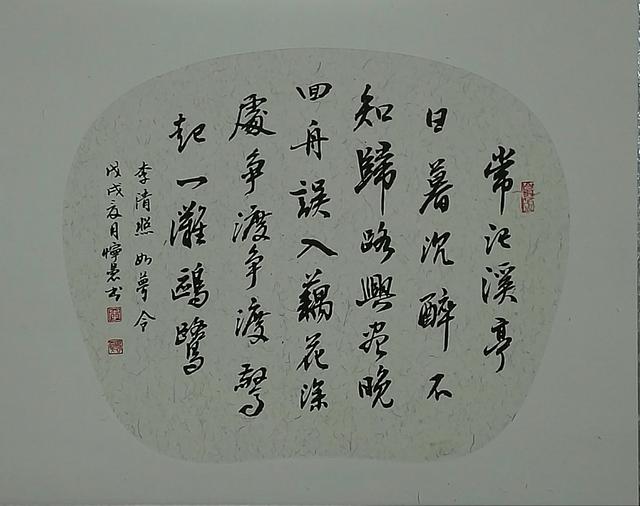 常记溪亭
日暮沉醉不
知歸路興尽晚
回舟誤入藕花深
處争渡争渡驚
起一灘鷗鷺
李清照 如夢令
戊戌夏月 书